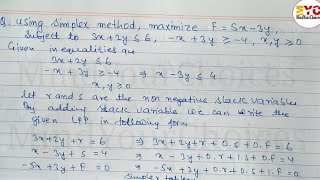 Q. Using simplex method, maximize F = 5x - 3y,
Subject to 3x + 2y ≤ 6, -x + 3y ≥ -4, x, y ≥ 0
Given inequalities are
3x + 2y ≤ 6
-x + 3y ≥ -4 ⇒ x - 3y ≤ 4
x, y ≥ 0
Let r and s are the non negative slack variables
By adding slack variable we can write the
given LPP in following form
3x + 2y + r = 6 ⇒ 3x + 2y + r + 0.s + 0.F = 6
x - 3y + s = 4 ⇒ x - 3y + 0.r + 1.s + 0.F = 4
-5x + 3y + F = 0 ⇒ -5x + 3y + 0.r + 0.s + F = 0
Simplex tableau
SYC